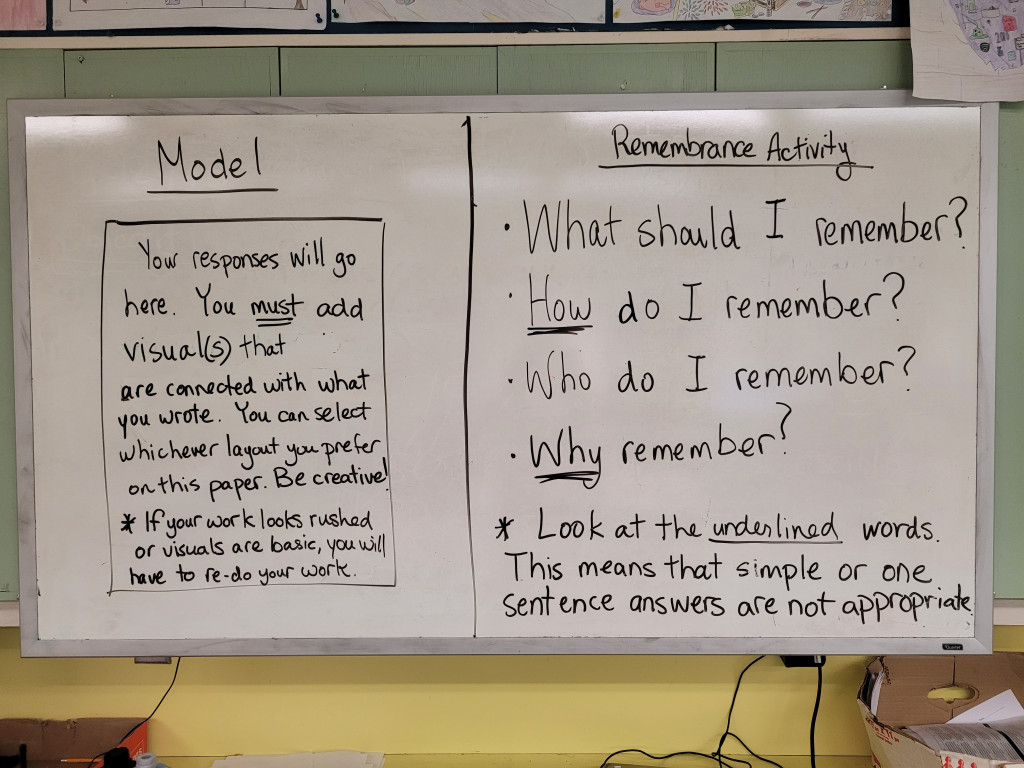 Model
Your responses will go
here. You must add
visual(s) that
are connected with what
you wrote. You can select
whichever layout you prefer
on this paper. Be creative!
* If your work looks rushed
or visuals are basic, you will
have to re-do your work.
Remembrance Activity
• What should I remember?
• How do I remember?
• Who do I remember?
• Why remember?
* Look at the underlined words.
This means that simple or one
sentence answers are not appropriate.
Quartet